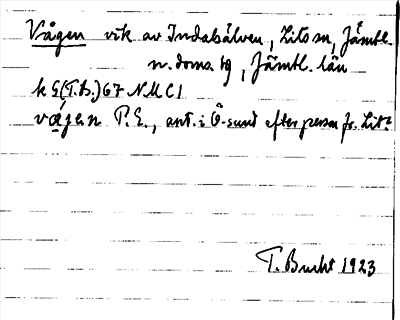 Vågen vik av Indalsälven, Lits sn, Jämtl.
n. doms. tg, Jämtl. län
k G(T.B.) 67 N M C 1
vǻgen P.E., ant. i Ö-sund efter person fr. Lit.
T. Bucht 1923